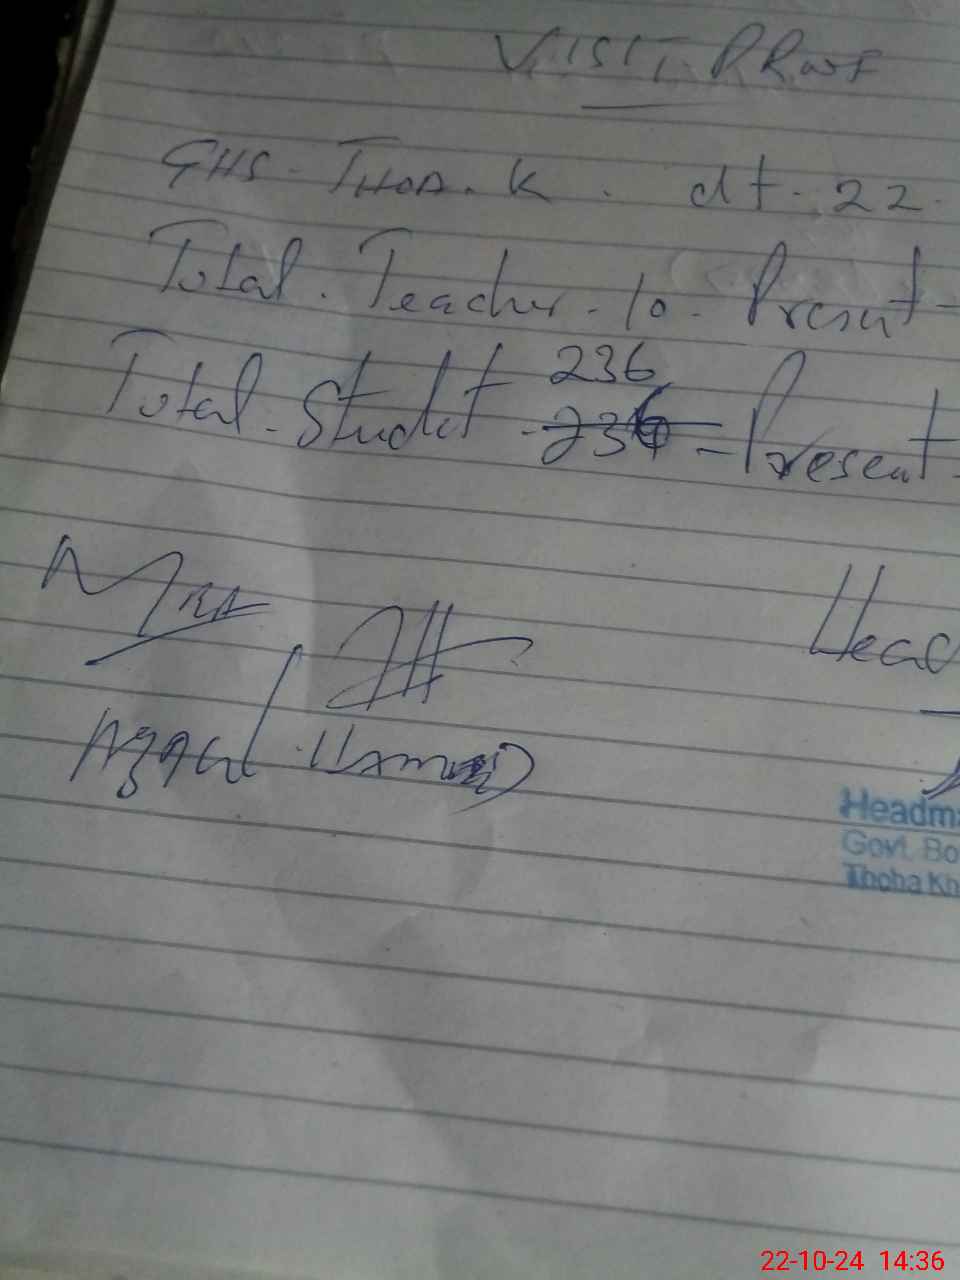 VISIT PROOF
GHS - THOA. K. dt - 22.
Total. Teacher - 10 - Present -
236
Total - Studet - 236 - Present -
Head
Hameed
Headma
Govt. Bo
Thoha Kh
22-10-24 14:36